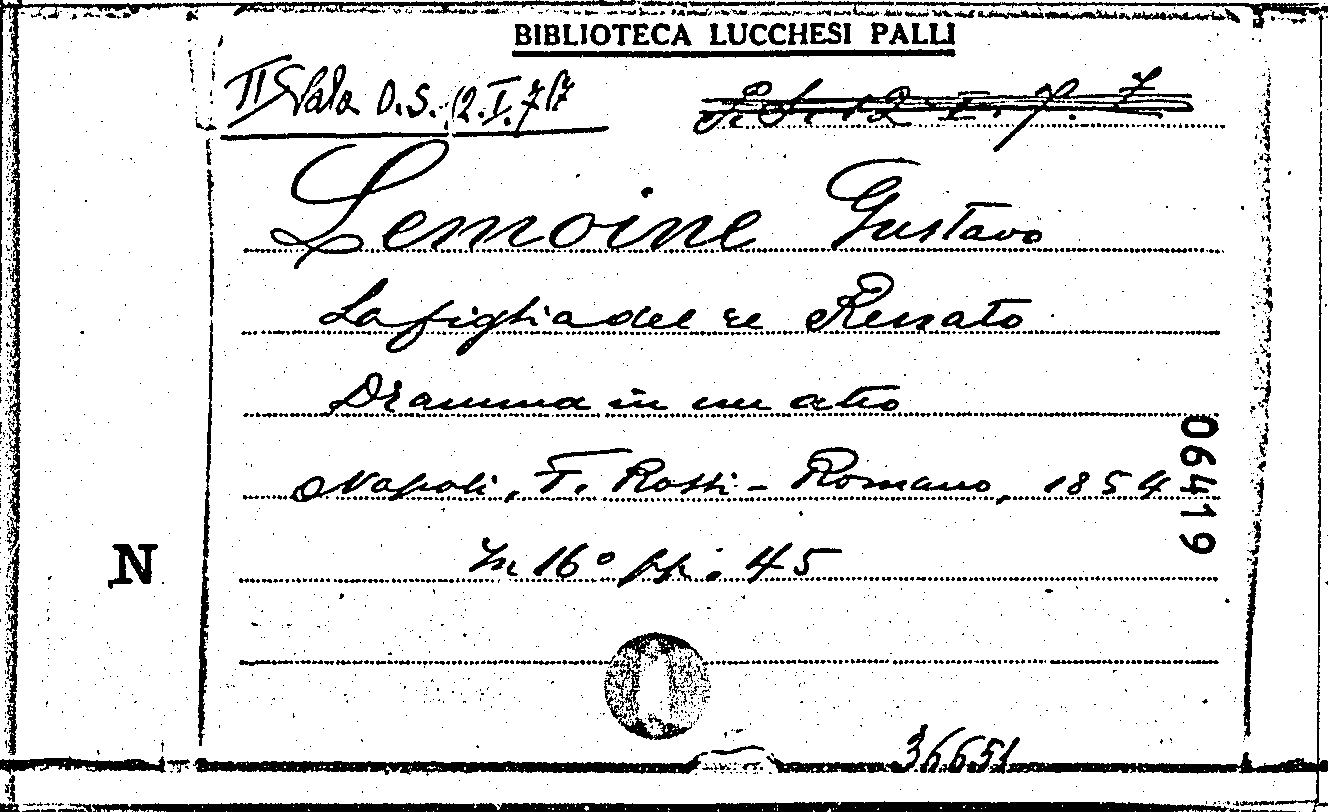 BIBLIOTECA LUCCHESI PALLI
II Sala O.S. 12.I.7
Lemoine Gustavo
La figlia del re Renato
Dramma in un atto
Napoli, F. Rossi-Romano, 1854
06419
In 16° pp. 45
N
36651